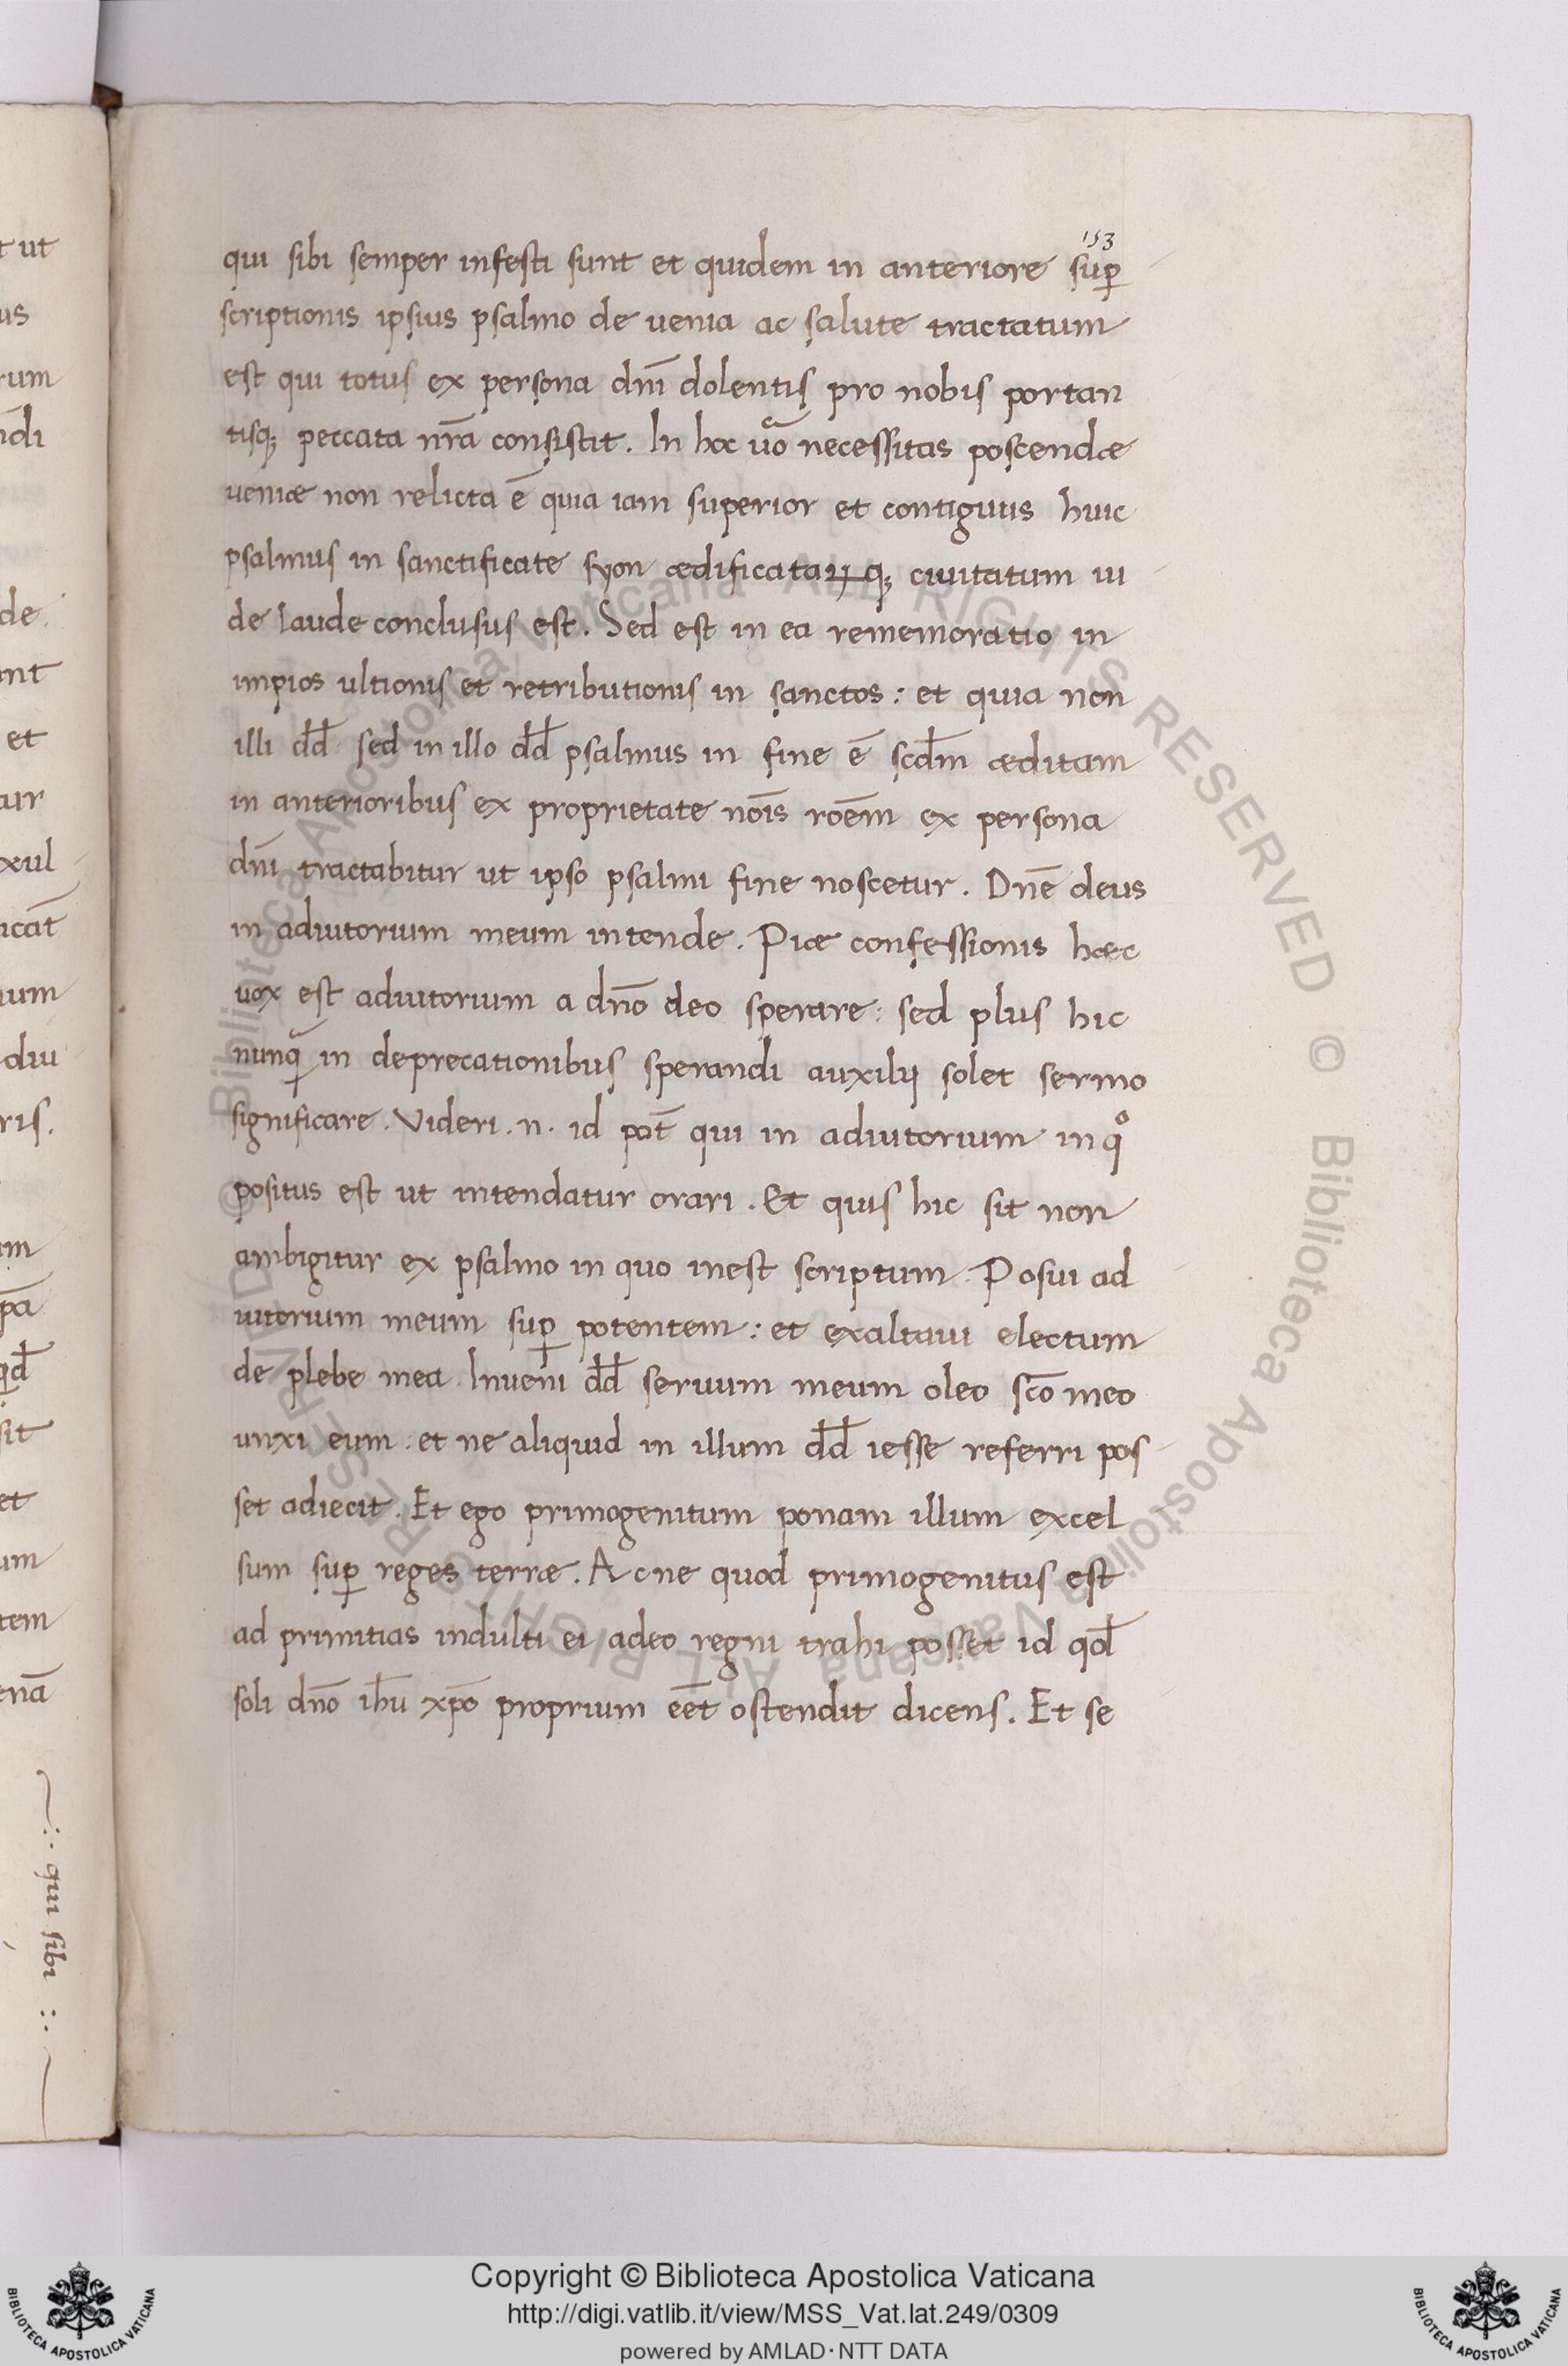 153
qui sibi semper infesti sunt et quidem in anteriore sup̱
scriptionis ipsius psalmo de uenia ac salute tractatum
est qui totus ex persona dñi dolentis pro nobis portan
tisq; peccata nr̃a consistit. In hoc uõ necessitas poscendæ
ueniæ non relicta ẽ quia iam superior et contiguus huic
psalmus in sanctificate syon ædificataꝝq; ciuitatum ui
de laude conclusus est. Sed est in ea rememoratio in
impios ultionis et retributionis in sanctos: et quia non
illi dd̄ sed in illo dd̄ psalmus in fine ẽ scd̄m æditam
in anterioribus ex proprietate nõis rõem ex persona
dñi tractabitur ut ipso psalmi fine noscetur. Dñe deus
in adiutorium meum intende. Piæ confessionis hæc
uox est adiutorium a dño deo sperare: sed plus hic
nunq̃ in deprecationibus sperandi auxilij solet sermo
significare. Videri .n. id põt qui in adiutorium in qͦ
positus est ut intendatur orari. Et quis hic sit non
ambigitur ex psalmo in quo inest scriptum. Posui ad
iutorium meum sup̱ potentem: et exaltaui electum
de plebe mea. Inueni dd̄ seruum meum oleo scõ meo
unxi eum: et ne aliquid in illum dd̄ iesse referri pos
set adiecit. Et ego primogenitum ponam illum excel
sum sup̱ reges terræ. Ac ne quod primogenitus est
ad primitias indulti ei adeo regni trahi posset id qd̄
soli dño ihũ xp̃o proprium eẽt ostendit dicens. Et se
qui sibi
Copyright © Biblioteca Apostolica Vaticana
http://digi.vatlib.it/view/MSS_Vat.lat.249/0309
powered by AMLAD·NTT DATA